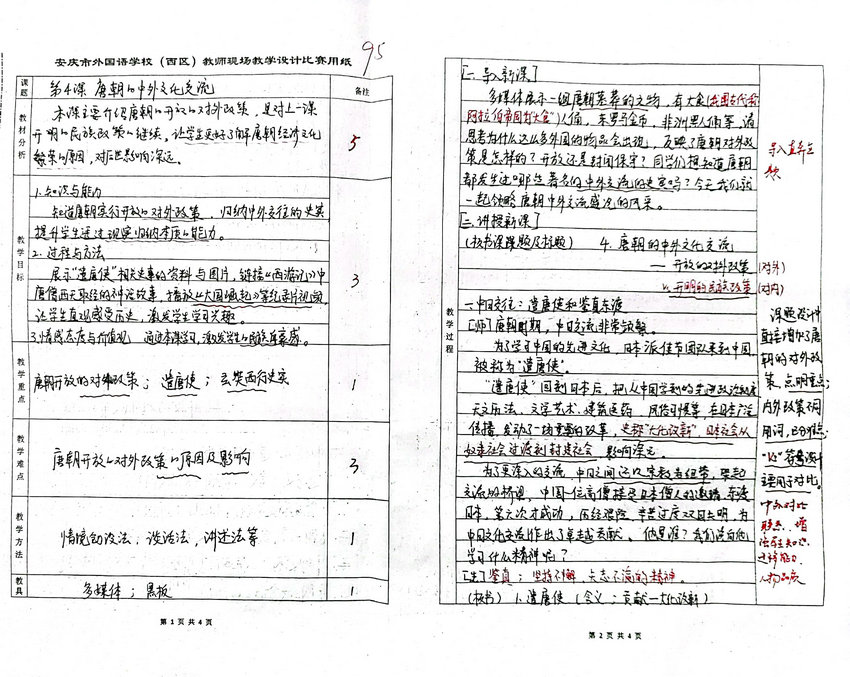 安庆市外国语学校（西区）教师现场教学设计比赛用纸
95
课题
第4课 唐朝的中外文化交流
备注
教材分析
本课主要介绍唐朝的开放的对外政策，是对上一课
开明的民族政策的继续。让学生更好了解唐朝经济文化
繁荣的原因，对后世影响深远。
5
教学目标
1.知识与能力
知道唐朝实行开放的对外政策，归纳中外交往的史实
提升学生透过现象归纳本质的能力。
2.过程与方法
展示“遣唐使”相关史事的资料与图片，链接《西游记》中
唐僧西天取经的神话故事，播放《大国崛起》等纪录片视频，
让学生直观感受历史，激发学生学习兴趣。
3.情感态度与价值观 通过本课学习，激发学生的民族自豪感。
3
教学重点
唐朝开放的对外政策；遣唐使；玄奘西行史实
1
教学难点
唐朝开放的对外政策的原因及影响
3
教学方法
情境创设法、谈话法，讲述法等
1
教具
多媒体；黑板
1
第 1 页 共 4 页
[一.导入新课]
多媒体展示一组唐朝墓葬的文物，有大食(我国古代称
阿拉伯帝国为“大食”)人俑，东罗马金币，非洲黑人俑等，请
思考为什么这么多外国的物品会出现，反映了唐朝对外政
策是怎样的？开放还是封闭保守？同学们想知道唐朝
都发生过哪些著名的中外交流的史实吗？今天我们就
一起领略唐朝中外交流盛况的风采。
导入直奔主
[二.讲授新课]
(板书课题及标题) 4.唐朝的中外文化交流
— 开放的对外政策 (对外)
Vs 开明的民族政策 (对内)
教学过程
一.中日交往：遣唐使和鉴真东渡
[师]唐朝时期，中日交流非常频繁。
为了学习中国的先进文化，日本派使节团队来到中国
被称为“遣唐使”。
“遣唐使”回到日本后，把从中国学到的先进政治制度
天文历法、文学艺术、建筑医药、风俗习惯等，在日本广泛
传播，发动了一场重要的改革，史称“大化改新”，日本社会从
奴隶社会过渡到封建社会，影响深远。
为了更深入的交流，中日之间还以宗教为纽带，架起
交流的桥梁，中国一位高僧接受日本僧人的邀请，东渡
日本，第六次才成功，历经艰险，辛苦过度双目失明，为
中日文化交流作出了卓越贡献。他是谁？我们该向他
学习什么精神呢？
[生]鉴真；坚持不懈、矢志不渝的精神。
(板书) 1.遣唐使 (含义；贡献—大化改新)
课题设计中
直接增加了唐
朝的对外政
策，点明重点；
内外政策不同
用词，
“Vs”符号设计
主要用于对比。
中外对比
人物品质
第 2 页 共 4 页